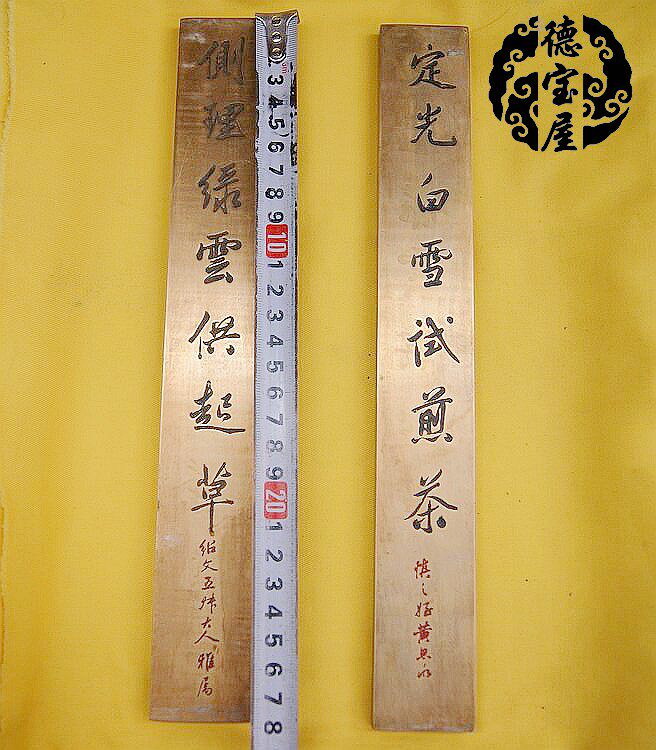 定光白雪試煎茶
側理綠雲供起草
紹文五
大人雅屬
慎之
黃
德宝屋
3
4
5
6
7
8
9
10
1
2
3
4
5
6
7
8
9
20
1
2
3
4
5
6
7
8